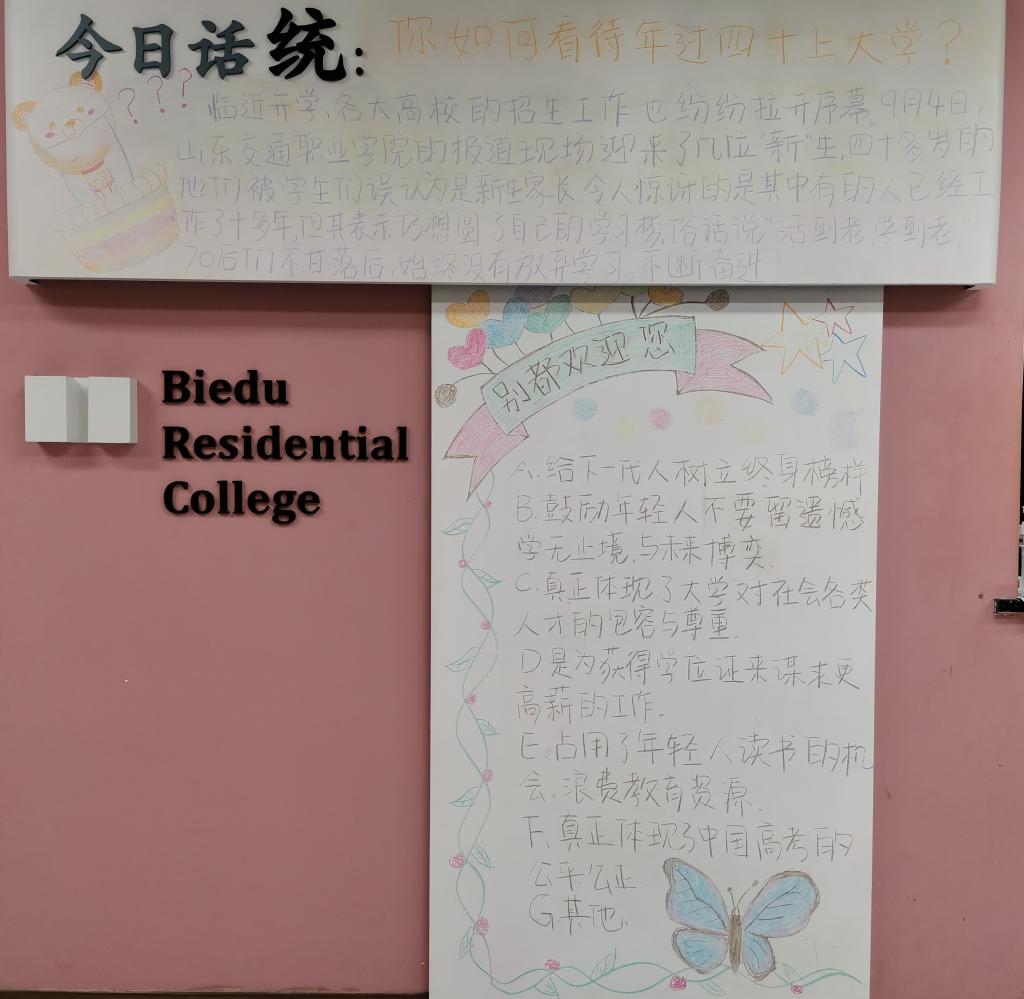 今日话统:
你如何看待年过四十上大学?
???
临近开学,各大高校的招生工作也纷纷拉开序幕。9月4日,
山东交通职业学院的报道现场迎来了几位"新"生,四十多岁的
他们被学生们误认为是新生家长,令人惊讶的是其中有的人已经工
作了十多年,但其表示仍想圆了自己的学习梦,俗话说"活到老,学到老,"
70后们不甘落后,始终没有放弃学习,不断奋进
别都欢迎您
Biedu
Residential
College
A.给下一代人树立终身榜样
B.鼓励年轻人不要留遗憾.
学无止境,与未来博奕.
C.真正体现了大学对社会各类
人才的包容与尊重.
D.是为获得学位证来谋求更
高薪的工作。
E.占用了年轻人读书的机
会.浪费教育资源.
F.真正体现了中国高考的
公平公正.
G.其他.